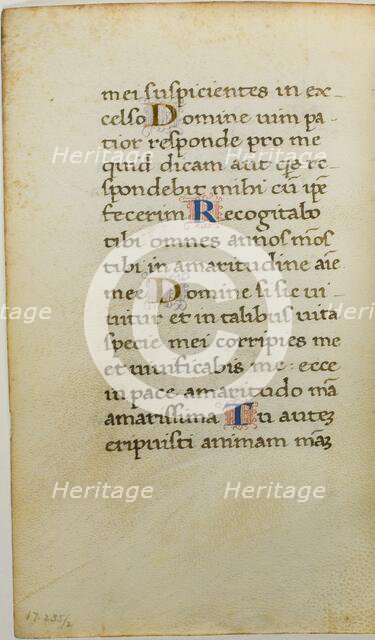 mei suspicientes in ex-
celso Domine uim pa-
tior responde pro me
quid dicam aut qs re-
spondebit mihi cū ipse
fecerim Recogitabo
tibi omnes annos mōs
tibi in amaritudine aīe
mee Domine si sic ui
uitur et in talibus uita
specie mei corripies me
et uiuificabis me · ecce
in pace amaritudo mā
amarissima Tu autez
eripuisti animam māz
17.235/2
Heritage Heritage
Heritage Heritage Heritage
Heritage Heritage